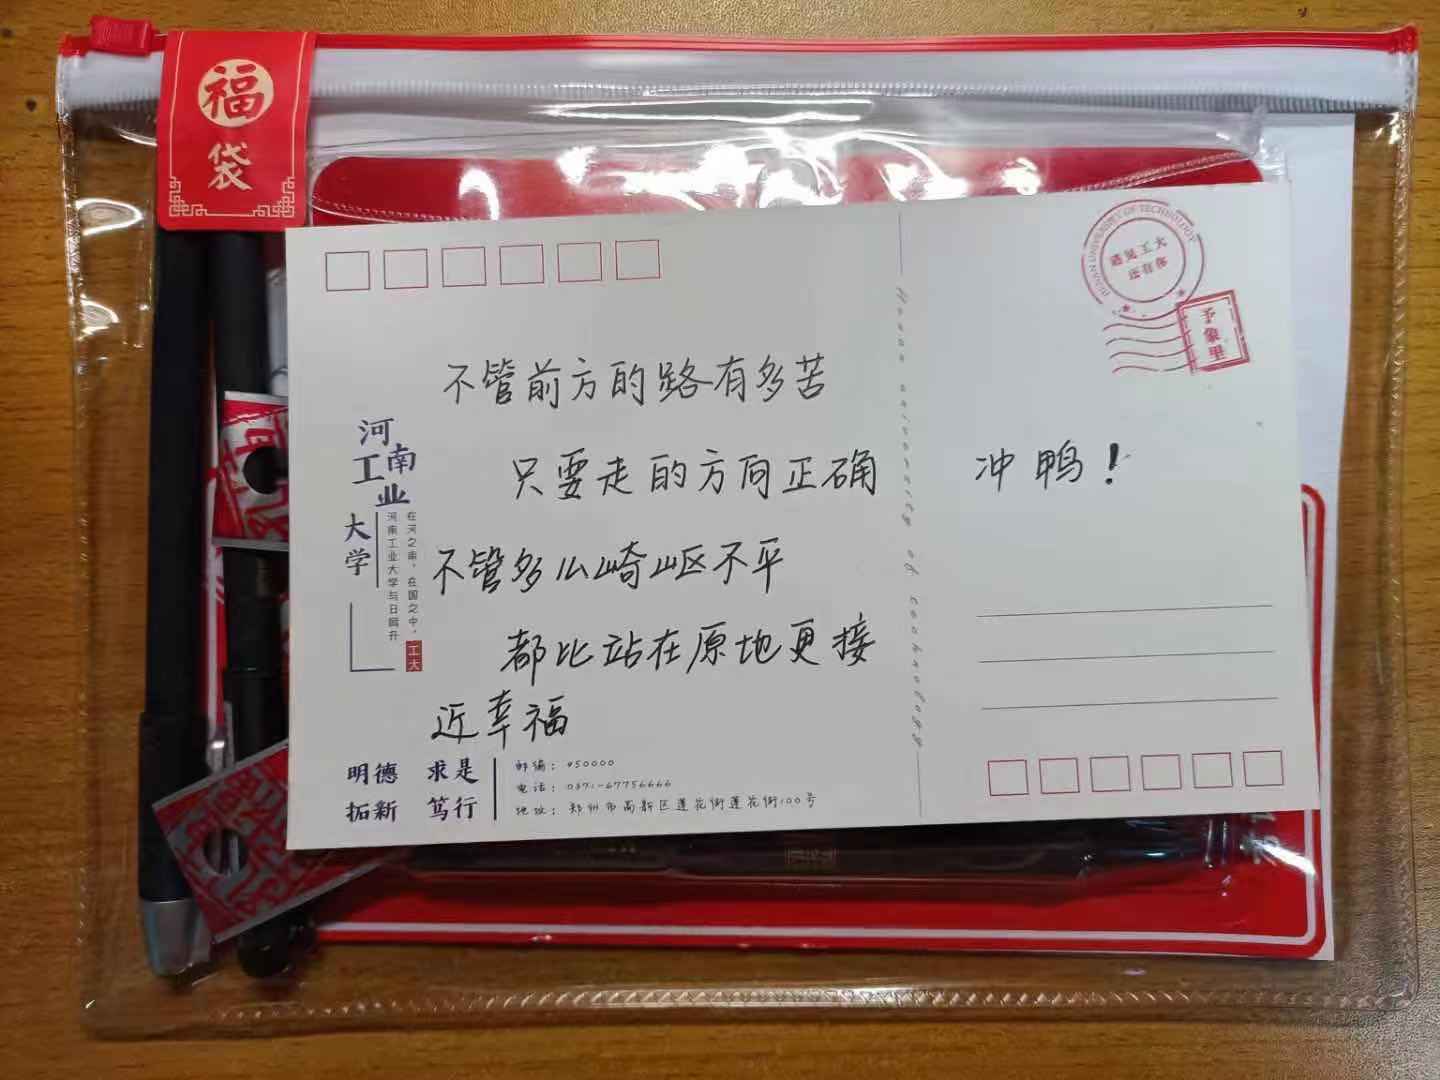 福
袋
HENAN UNIVERSITY OF TECHNOLOGY
遇见工大
还有你
予象里
不管前方的路有多苦
只要走的方向正确 冲鸭！
不管多么崎岖不平
都比站在原地更接
近幸福
河南
工业
大学
在河之南，在国之中，工大
河南工业大学与日同升
Henan university of technology
明德 求是
拓新 笃行
邮编：450000
电话：0371-67756666
地址：郑州市高新区莲花街莲花街100号